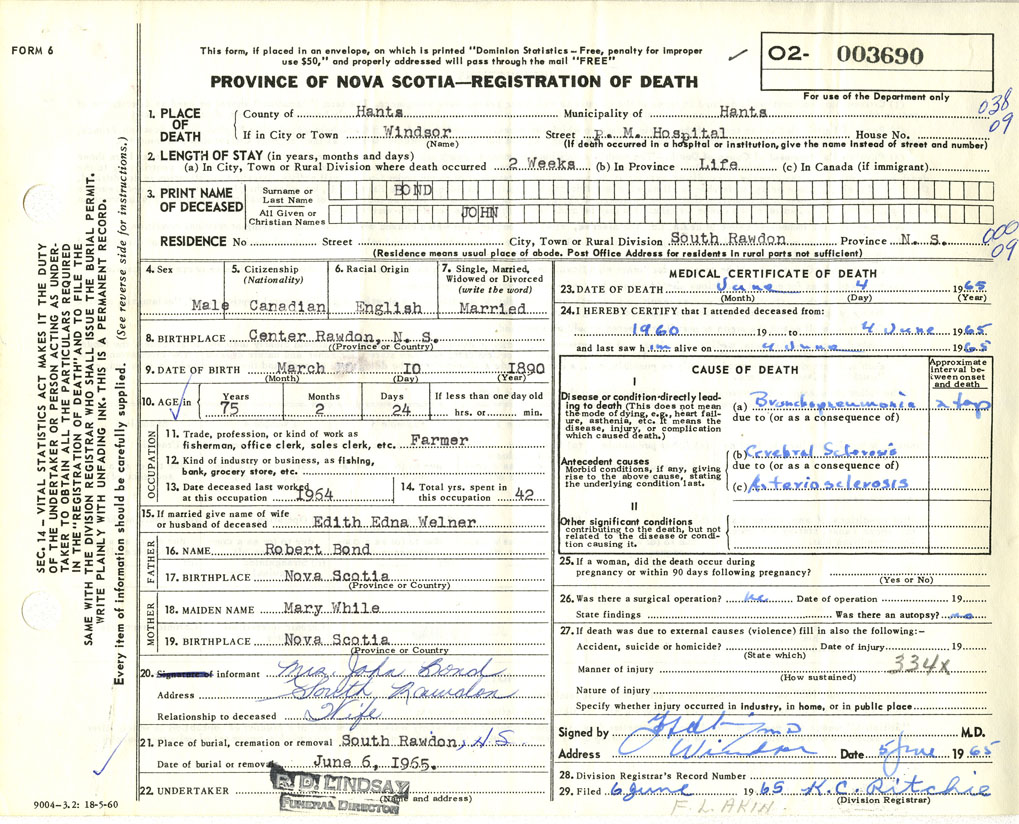 FORM 6
This form, if placed in an envelope, on which is printed "Dominion Statistics – Free, penalty for improper
use $50," and properly addressed will pass through the mail "FREE"
PROVINCE OF NOVA SCOTIA—REGISTRATION OF DEATH
O2- 003690
For use of the Department only
038
09
1. PLACE OF DEATH
County of Hants Municipality of Hants
If in City or Town Windsor Street P. M. Hospital House No.
(Name) (If death occurred in a hospital or institution, give the name instead of street and number)
2. LENGTH OF STAY (in years, months and days)
(a) In City, Town or Rural Division where death occurred 2 Weeks (b) In Province Life (c) In Canada (if immigrant)
3. PRINT NAME OF DECEASED
Surname or Last Name BOND
All Given or Christian Names JOHN
000
09
RESIDENCE No Street City, Town or Rural Division South Rawdon Province N. S.
(Residence means usual place of abode. Post Office Address for residents in rural parts not sufficient)
4. Sex Male
5. Citizenship (Nationality) Canadian
6. Racial Origin English
7. Single, Married, Widowed or Divorced (write the word) Married
8. BIRTHPLACE Center Rawdon, N. S.
((Province or Country)
9. DATE OF BIRTH March 10 1890
(Month) (Day) (Year)
10. AGE in Years 75 Months 2 Days 24 If less than one day old hrs. or min.
OCCUPATION
11. Trade, profession, or kind of work as
fisherman, office clerk, sales clerk, etc. Farmer
12. Kind of industry or business, as fishing,
bank, grocery store, etc.
13. Date deceased last worked
at this occupation 1964
14. Total yrs. spent in
this occupation 42
15. If married give name of wife
or husband of deceased Edith Edna Welner
FATHER
16. NAME Robert Bond
17. BIRTHPLACE Nova Scotia
(Province or Country)
MOTHER
18. MAIDEN NAME Mary While
19. BIRTHPLACE Nova Scotia
(Province or Country)
20. Signature of informant Mrs. John Bond
Address South Rawdon
Relationship to deceased Wife
21. Place of burial, cremation or removal South Rawdon, N.S.
Date of burial or removal June 6, 1965.
22. UNDERTAKER R. D. LINDSAY
FUNERAL DIRECTOR
(Name and address)
MEDICAL CERTIFICATE OF DEATH
23. DATE OF DEATH June 4 1965
(Month) (Day) (Year)
24. I HEREBY CERTIFY that I attended deceased from:
1960 19 to 4 June 1965
and last saw him alive on 4 June 1965
CAUSE OF DEATH
Approximate interval between onset and death
I
Disease or condition directly leading to death (This does not mean the mode of dying, e.g., heart failure, asthenia, etc. It means the disease, injury, or complication which caused death.)
(a) Bronchopneumonia
due to (or as a consequence of)
Antecedent causes
Morbid conditions, if any, giving rise to the above cause, stating the underlying condition last.
(b) Cerebral Sclerosis
due to (or as a consequence of)
(c) Arteriosclerosis
II
Other significant conditions
contributing to the death, but not related to the disease or condition causing it.
25. If a woman, did the death occur during
pregnancy or within 90 days following pregnancy?
(Yes or No)
26. Was there a surgical operation? no Date of operation 19
State findings Was there an autopsy? no
27. If death was due to external causes (violence) fill in also the following:–
Accident, suicide or homicide? Date of injury 19
(State which)
Manner of injury 334X
(How sustained)
Nature of injury
Specify whether injury occurred in industry, in home, or in public place
Signed by M.D.
Address Windsor Date 5 June 1965
28. Division Registrar's Record Number
29. Filed 6 June 1965 K.C. Ritchie
(Division Registrar)
F. L. AKIN.
9004–3.2: 18-5-60
SEC. 14 – VITAL STATISTICS ACT MAKES IT THE DUTY
OF THE UNDERTAKER OR PERSON ACTING AS UNDER-
TAKER TO OBTAIN ALL THE PARTICULARS REQUIRED
IN THE "REGISTRATION OF DEATH" AND TO FILE THE
SAME WITH THE DIVISION REGISTRAR WHO SHALL ISSUE THE BURIAL PERMIT.
WRITE PLAINLY WITH UNFADING INK. THIS IS A PERMANENT RECORD.
Every item of information should be carefully supplied. (See reverse side for instructions.)